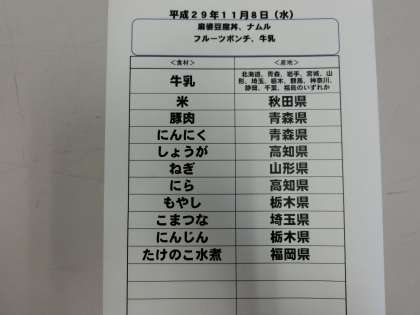 平成29年11月8日（水）
麻婆豆腐丼、ナムル
フルーツポンチ、牛乳
＜食材＞ ＜産地＞
牛乳 北海道、青森、岩手、宮城、山
形、埼玉、栃木、群馬、神奈川、
静岡、千葉、福島のいずれか
米 秋田県
豚肉 青森県
にんにく 青森県
しょうが 高知県
ねぎ 山形県
にら 高知県
もやし 栃木県
こまつな 埼玉県
にんじん 栃木県
たけのこ水煮 福岡県